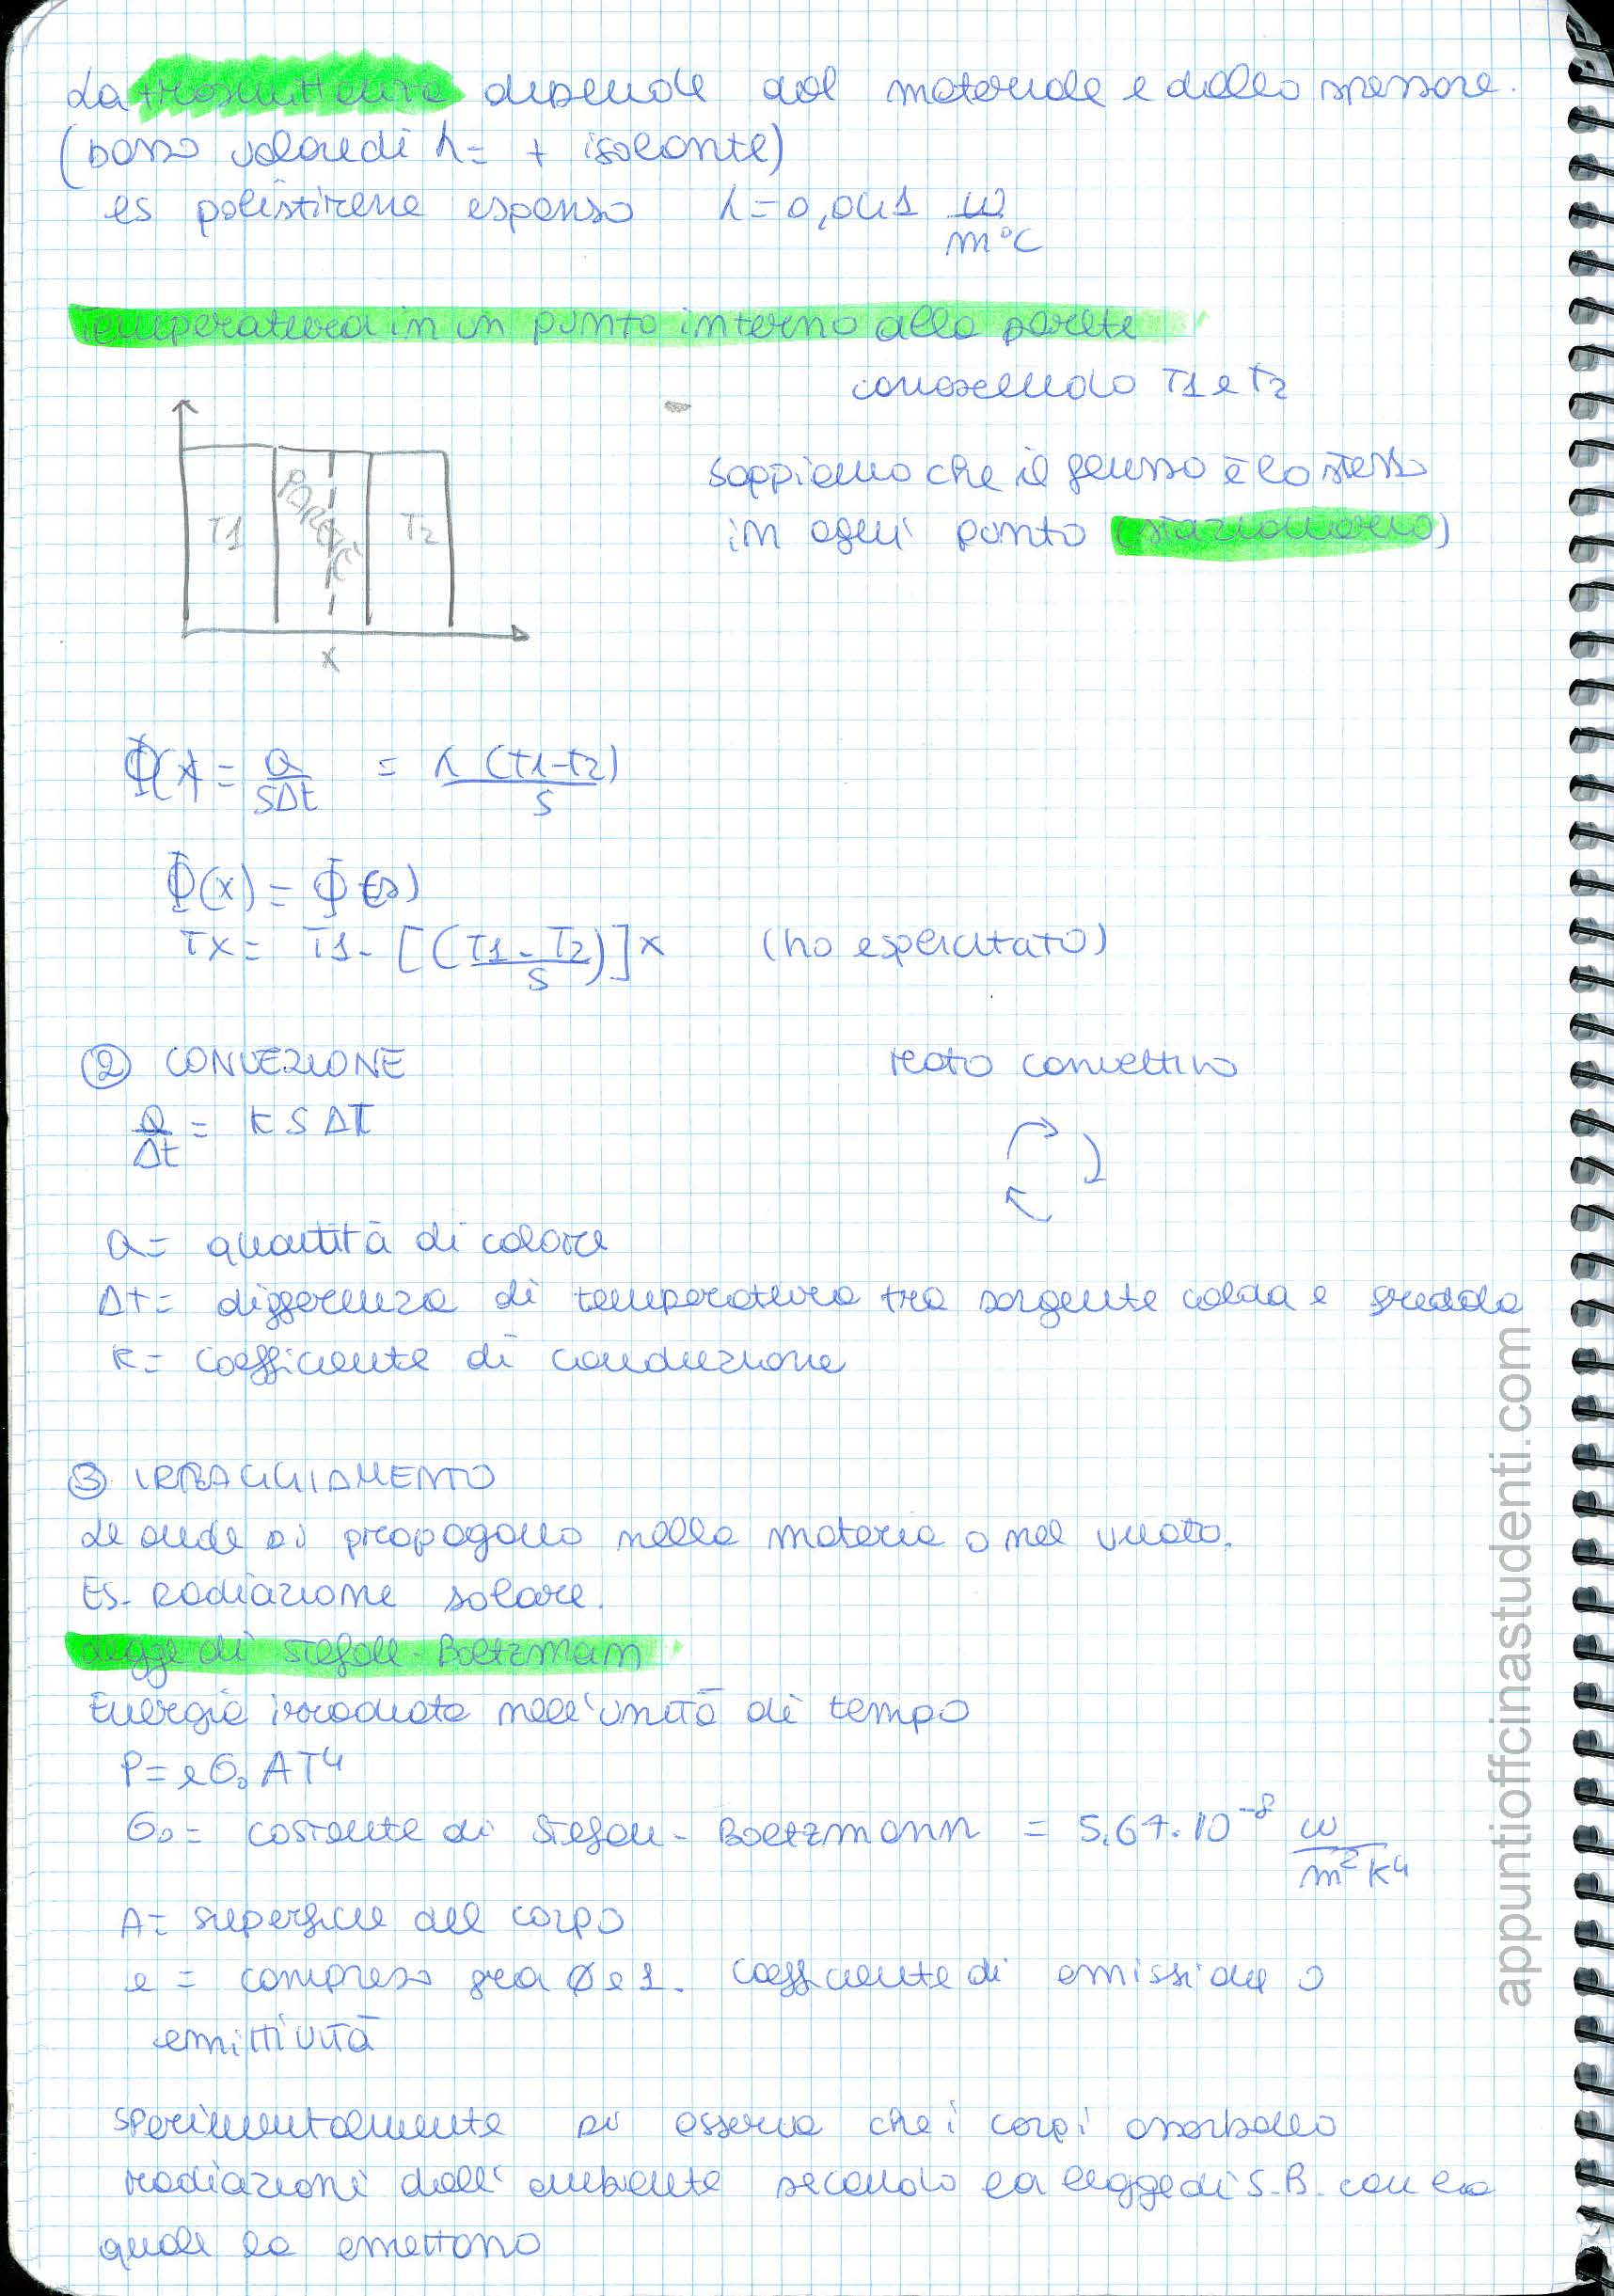 La trasmittanza dipende dal materiale e dallo spessore.
(basso valore di λ = + isolante)
es polistirene espanso λ = 0,041 W
m°C
Temperatura in un punto interno alla parete
conoscendo T1 e T2
T1 PARETE T2
x
sappiamo che il flusso è lo stesso
in ogni punto (stazionario)
Φ(x) = Q/SΔt = λ (T1-T2)/S
Φ(x) = Φ(s)
Tx = T1 - [(T1 - T2)/S] x (ho esplicitato)
② CONVEZIONE
moto convettivo
Q/Δt = K S ΔT
Q = quantità di calore
Δt = differenza di temperatura tra sorgente calda e fredda
K = coefficiente di conduzione
③ IRRAGGIAMENTO
Le onde si propagano nella materia o nel vuoto.
ES. Radiazione solare.
Legge di Stefan-Boltzman
Energia irradiata nell'unità di tempo
P = eσ₀AT⁴
σ₀ = costante di Stefan-Boltzmann = 5.67·10⁻⁸ W/m²K⁴
A = superficie del corpo
e = compreso fra Ø e 1. Coefficiente di emissione o
emittività
Sperimentalmente si osserva che i corpi assorbono
radiazioni dall'ambiente secondo la legge di S-B. con la
quale la emettono
appuntiofficinastudenti.com